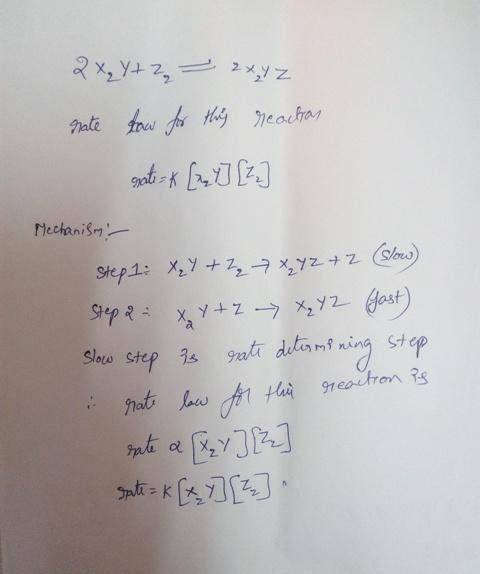 2 X₂Y + Z₂ ⇌ 2 X₂YZ
rate law for this reaction
rate = K [X₂Y] [Z₂]
Mechanism:-
Step 1:- X₂Y + Z₂ → X₂YZ + Z (slow)
Step 2:- X₂Y + Z → X₂YZ (fast)
Slow step is rate determining step
∴ rate law for this reaction is
rate α [X₂Y] [Z₂]
rate = K [X₂Y] [Z₂] .